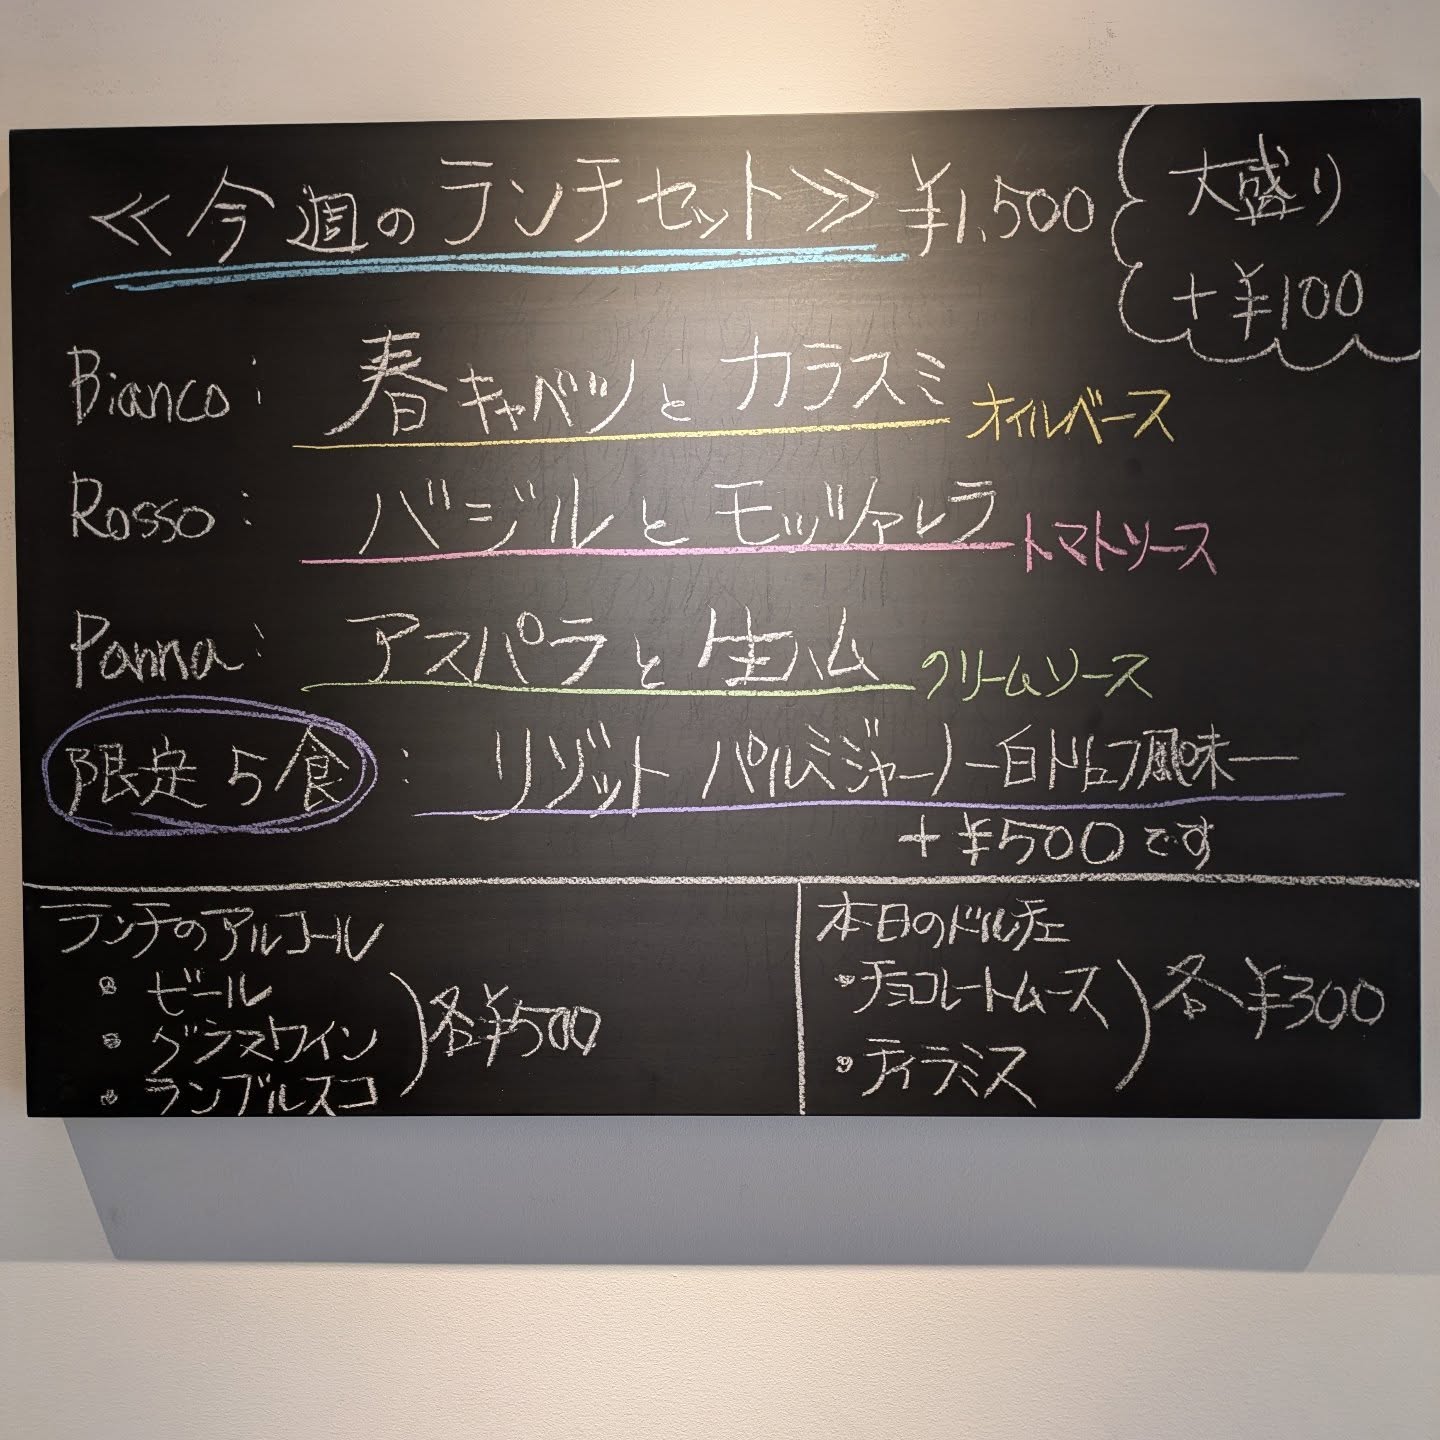 ≪今週のランチセット≫ ¥1,500
大盛り
+¥100
Bianco: 春キャベツとカラスミ オイルベース
Rosso: バジルとモッツァレラ トマトソース
Panna: アスパラと生ハム クリームソース
限定5食: リゾット パルミジャーノ ー白トリュフ風味ー
+¥500です
ランチのアルコール
・ビール
・グラスワイン
・ランブルスコ
各¥500
本日のドルチェ
・チョコレートムース
・ティラミス
各¥300